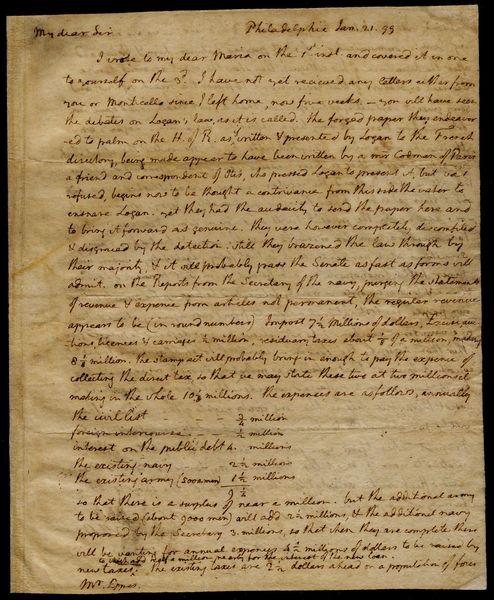 My dear Sir Philadelphia Jan. 21. 99
I wrote to my dear Maria on the 1st inst and covered it in one
to yourself on the 3d. I have not yet recieved any letters either from
you or Monticello since I left home, now five weeks. — you will have seen
the debates on Logan's law, as it is called. the forged paper they endeavor
-ed to palm on the H. of R. as written & presented by Logan to the French
directory, being made appear to have been written by a mr Codman of Paris
a friend and correspondent of Otis, who pressed Logan to present it, but was
refused, begins now to be thought a contrivance from this side the water to
ensnare Logan. yet they had the audacity to send the paper here and
to bring it forward as genuine. they were however completely discomfited
& disgraced by the detection. still they brazoned the law through by
their majority & it will probably pass the Senate as fast as forms will
admit. on the Reports from the Secretary of the navy, purging the statements
of revenue & expence from articles not permanent, the regular revenue
appears to be (in round numbers) Impost 7½ Millions of dollars, Excise, auc-
tions, licences & carriages ½ million, residuary taxes about ⅛ of a million, making
8⅛ million. the stamp act will probably bring in enough to pay the expence of
collecting the direct tax so that we may state these two at two millions
making in the whole 10⅛ millions. the expences are as follows, annually
the civil list ¾ million
foreign intercourse ½ million
interest on the public debt 4. millions
the existing navy 2½ millions
the existing army (5000 men) 1½ millions
9¼
so that there is a surplus of near a million. but the additional army
to be raised (about 9000 men) will add 2½ millions, & the additional navy
proposed by the Secretary 3. millions, so that when they are complete there
will be wanting for annual expences 4½ millions of dollars to be raised by
to which add half a million nearly for the interest of the new loan.
new taxes. the existing taxes are 2½ dollars a head on a population of four
Mr. Eppes.